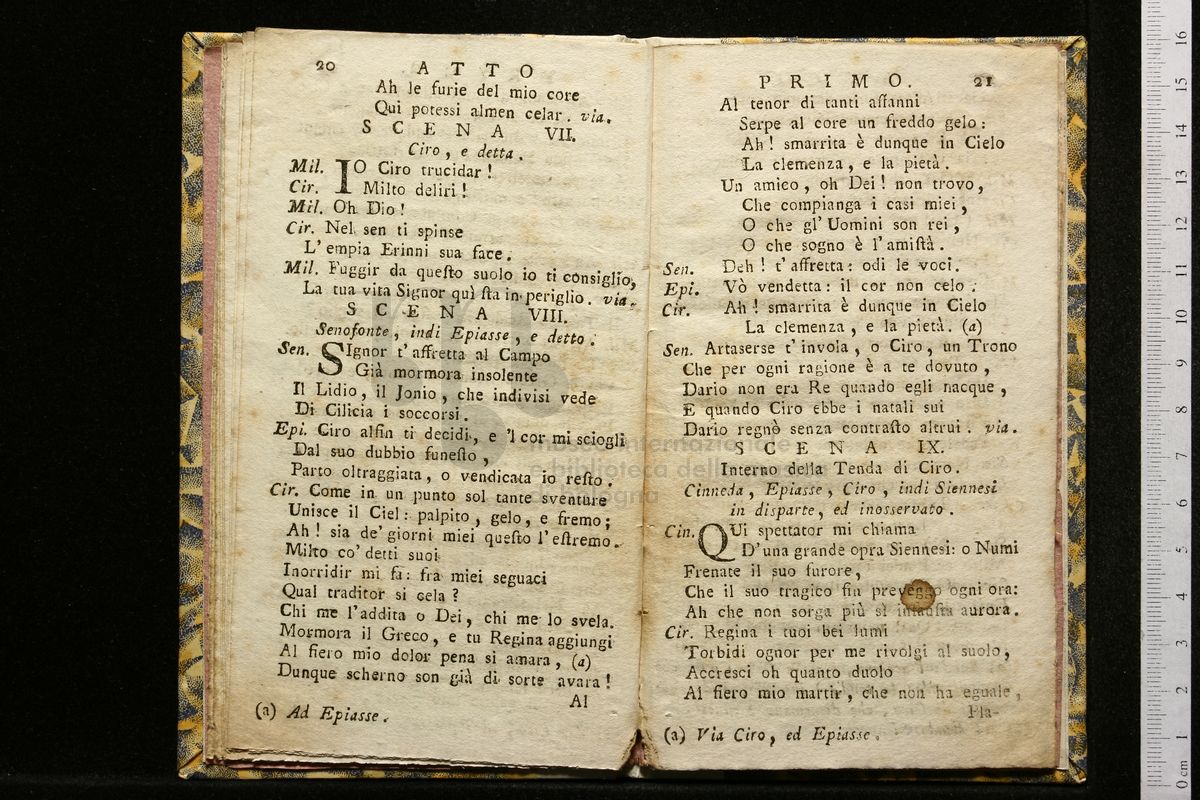 20 ATTO
Ah le furie del mio core
Qui potessi almen celar. via.
SCENA VII.
Ciro, e detta.
Mil. IO Ciro trucidar!
Cir. Milto deliri!
Mil. Oh Dio!
Cir. Nel sen ti spinse
L'empia Erinni sua face.
Mil. Fuggir da queſto suolo io ti consiglio,
La tua vita Signor quì ſta in periglio. via.
SCENA VIII.
Senofonte, indi Epiasse, e detto.
Sen. SIgnor t'affretta al Campo
Già mormora insolente
Il Lidio, il Jonio, che indivisi vede
Di Cilicia i soccorsi.
Epi. Ciro alfin ti decidi, e 'l cor mi sciogli
Dal suo dubbio funeſto,
Parto oltraggiata, o vendicata io reſto.
Cir. Come in un punto sol tante sventure
Unisce il Ciel: palpito, gelo, e fremo;
Ah! sia de' giorni miei queſto l'eſtremo.
Milto co' detti suoi
Inorridir mi fà: fra miei seguaci
Qual traditor si cela?
Chi me l'addita o Dei, chi me lo svela.
Mormora il Greco, e tu Regina aggiungi
Al fiero mio dolor pena si amara, (a)
Dunque scherno son già di sorte avara!
Al
(a) Ad Epiasse.
PRIMO. 21
Al tenor di tanti aſſanni
Serpe al core un freddo gelo:
Ah! smarrita è dunque in Cielo
La clemenza, e la pietà.
Un amico, oh Dei! non trovo,
Che compianga i casi miei,
O che gl'Uomini son rei,
O che sogno è l'amiſtà.
Sen. Deh! t'affretta: odi le voci.
Epi. Vò vendetta: il cor non celo.
Cir. Ah! smarrita è dunque in Cielo
La clemenza, e la pietà. (a)
Sen. Artaserse t'invola, o Ciro, un Trono
Che per ogni ragione è a te dovuto,
Dario non era Re quando egli nacque,
E quando Ciro ebbe i natali sui
Dario regnò senza contraſto altrui. via.
SCENA IX.
Interno della Tenda di Ciro.
Cinneda, Epiasse, Ciro, indi Siennesi
in disparte, ed inosservato.
Cin. QUi spettator mi chiama
D'una grande opra Siennesi: o Numi
Frenate il suo furore,
Che il suo tragico fin preveggo ogni ora:
Ah che non sorga più sì infauſta aurora.
Cir. Regina i tuoi bei lumi
Torbidi ognor per me rivolgi al suolo,
Accresci oh quanto duolo
Al fiero mio martir, che non ha eguale,
Pla-
(a) Via Ciro, ed Epiasse.
museo internazionale
e biblioteca della